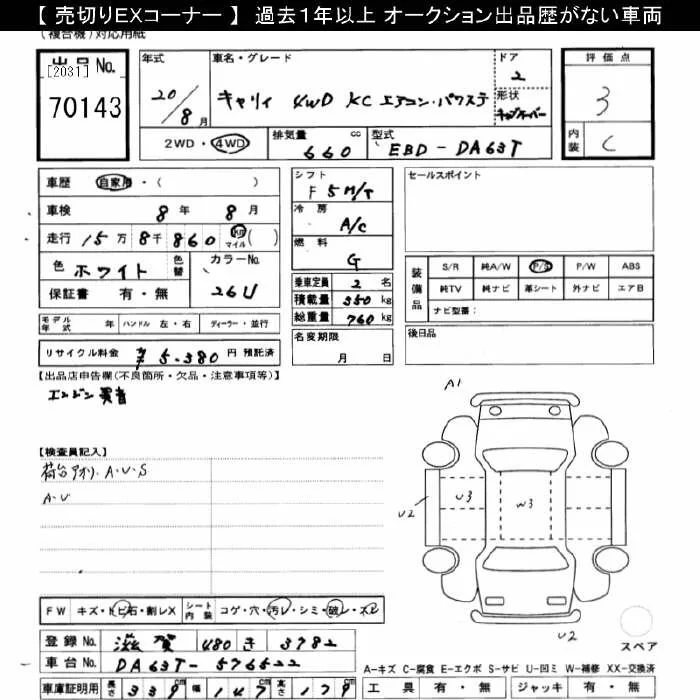 【 売切りEXコーナー 】 過去１年以上 オークション出品歴がない車両
(複合機)対応用紙
出品No.
[2031]
70143
年式
20/8月
車名・グレード
キャリィ 4WD KC エアコン・パワステ
ドア
2
形状
評価点
3
内装
C
2WD・4WD
排気量
660
cc
型式
EBD-DA63T
車歴 自家用・( )
車検 8年 8月
走行 15万 8千 860 km マイル ( )
色 ホワイト
色替
カラーNo.
26U
保証書 有・無
モデル年式 年 ハンドル 左・右 ディーラー・並行
リサイクル料金 ¥5,380 円 預託済
シフト
F5M/T
冷房
A/C
燃料
G
乗車定員 2名
積載量 350kg
総重量 760kg
名変期限
月 日
セールスポイント
装備品
S/R 純A/W P/S P/W ABS
純TV 純ナビ 革シート 外ナビ エアB
ナビ型番：
後日品
【出品店申告欄(不良箇所・欠品・注意事項等)】
エンジン異音
【検査員記入】
荷台アオリ・A・U・S
A・U
A1
U2
U3
W3
U2
スペア
FW キズ・トビ石・割レX シート内装 コゲ・穴・汚レ・シミ・破レ・スレ
登録No. 滋賀 480 き 3782
車台No. DA63T-576522
車庫証明用 長さ 339 幅 147 高さ 179
A-キズ C-腐食 E-エクボ S-サビ U-凹ミ W-補修 XX-交換済
工具 有・無 ジャッキ 有・無